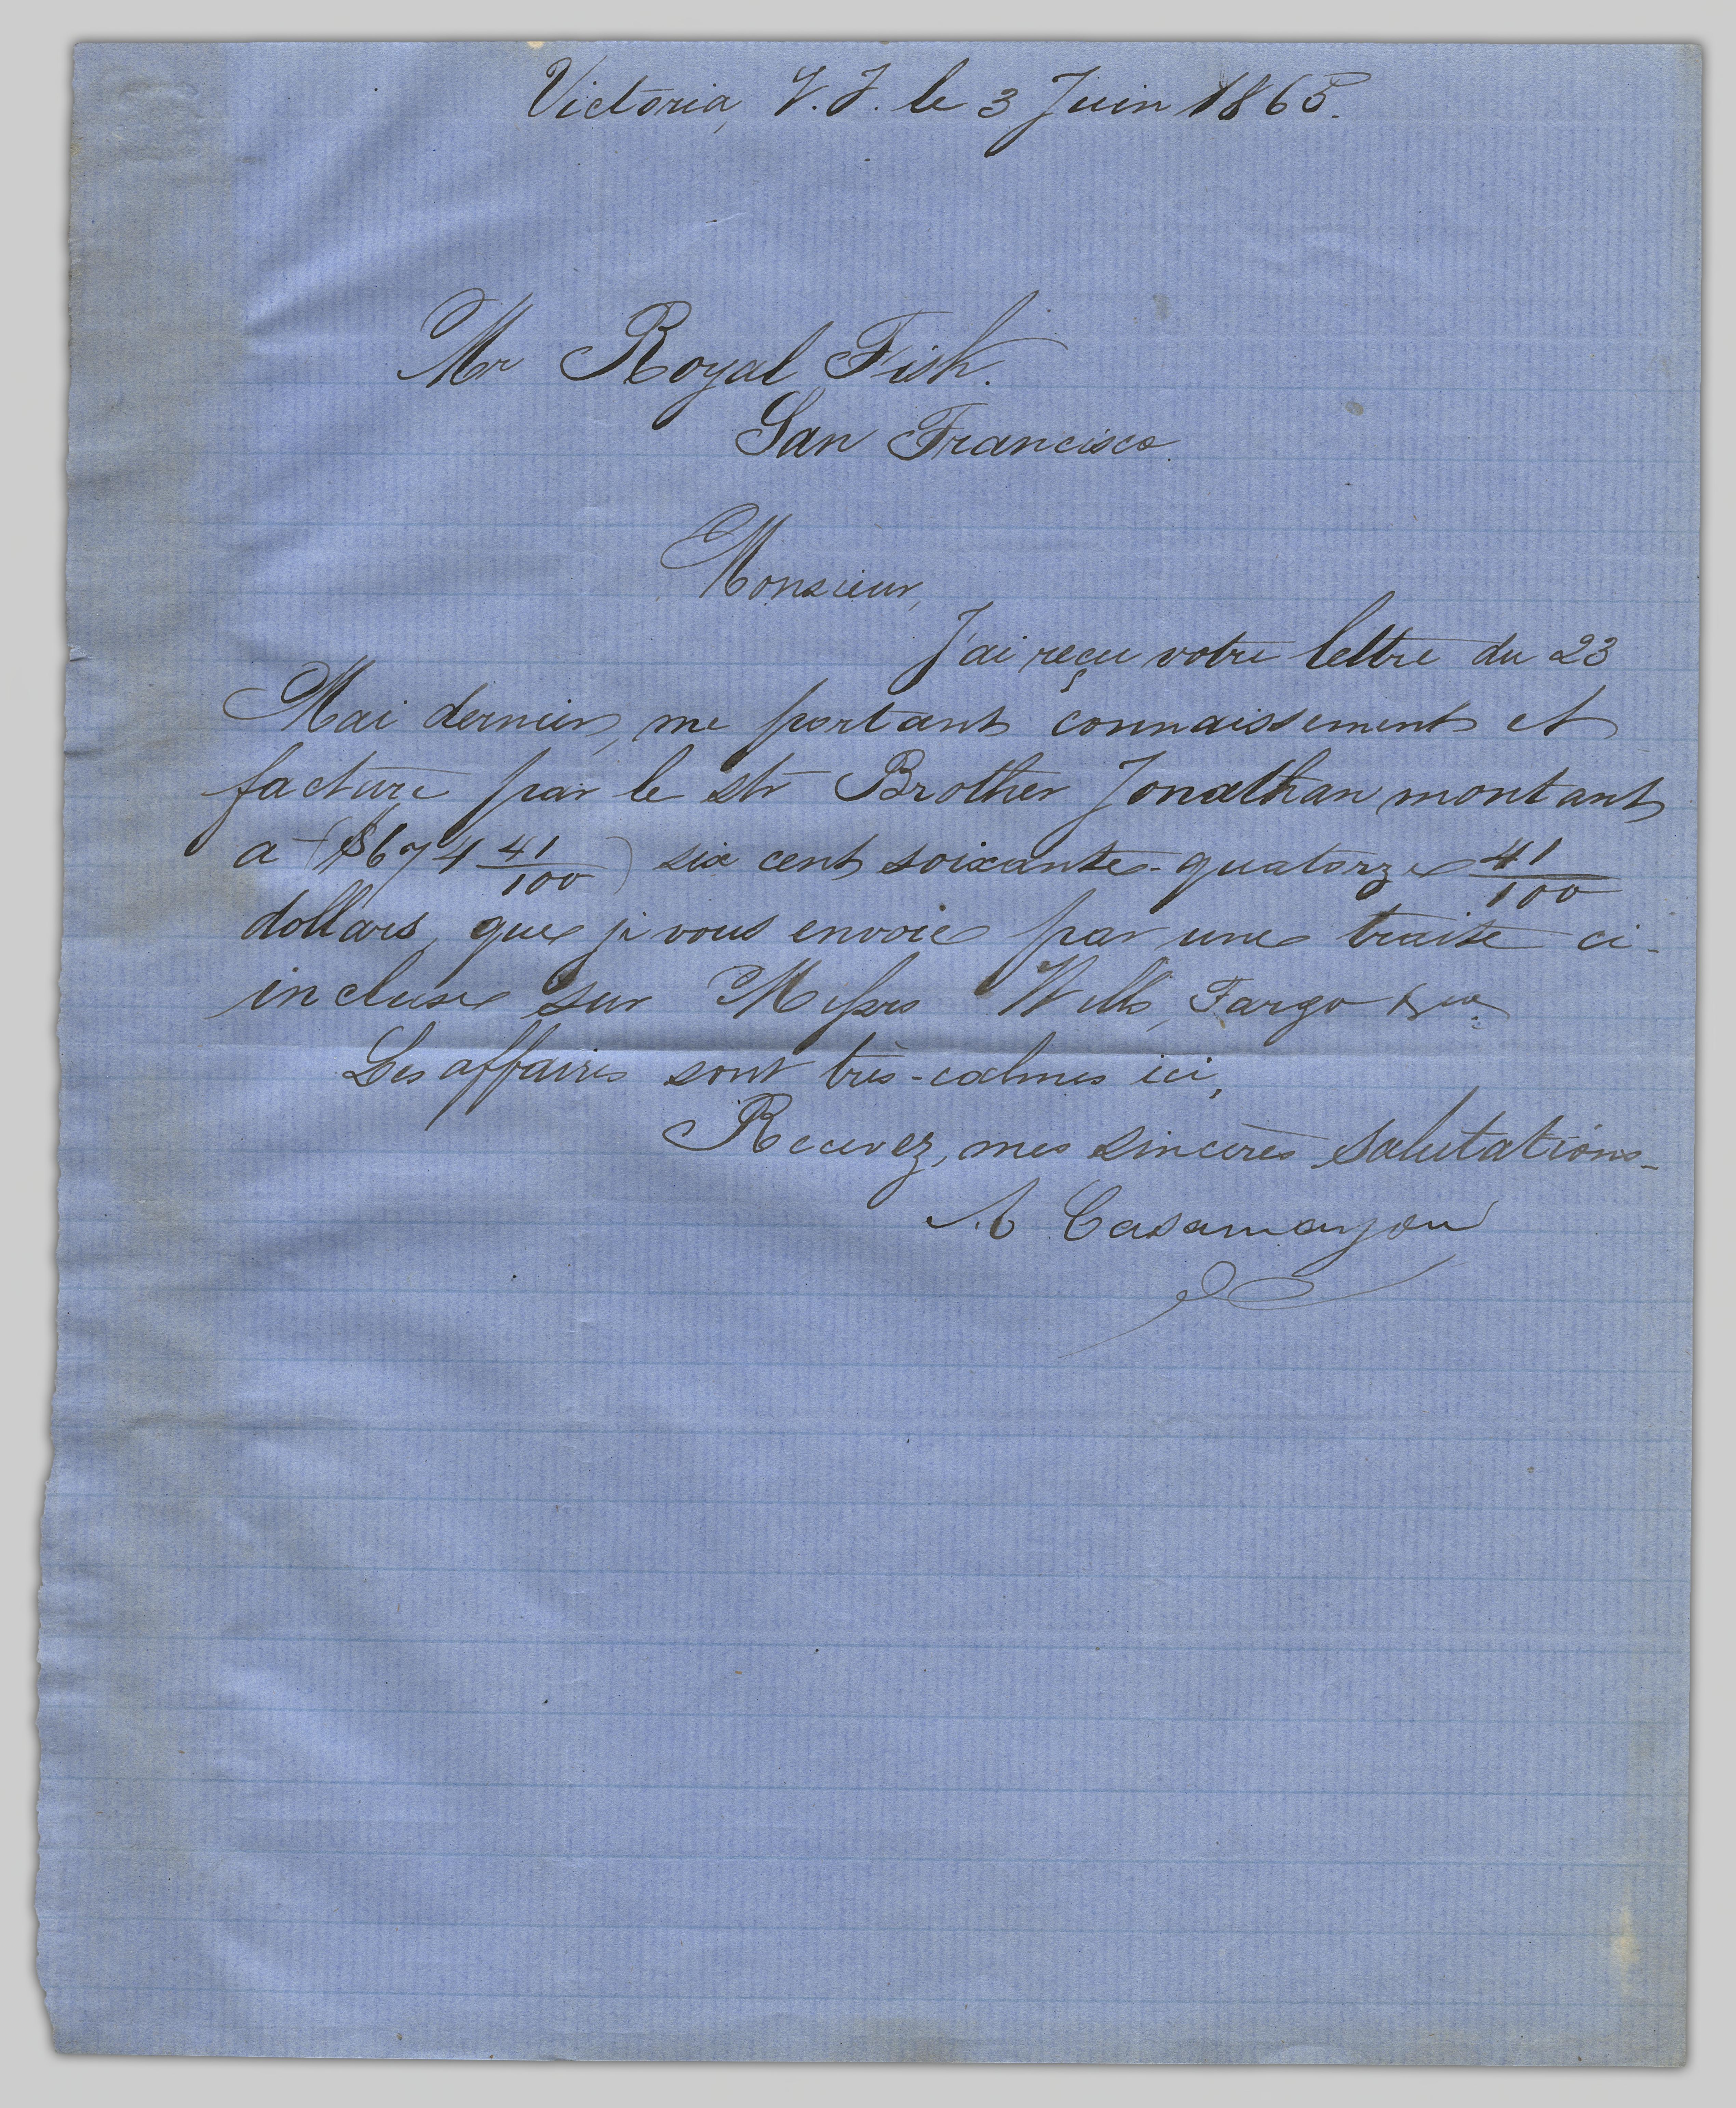 Victoria, V.I. le 3 Juin 1865.
Mr Royal Fish.
San Francisco.
Monsieur,
J'ai reçu votre lettre du 23
Mai dernier, me portant connaissement et
facture par le str Brother Jonathan montant
a ($674 41/100) six cent soixante-quatorze 41/100
dollars, que je vous envoie par une traite ci-
incluse sur Messrs Wells, Fargo & co.
Les affaires sont très-calmes ici.
Recevez, mes sincères salutations-
A Casamayou